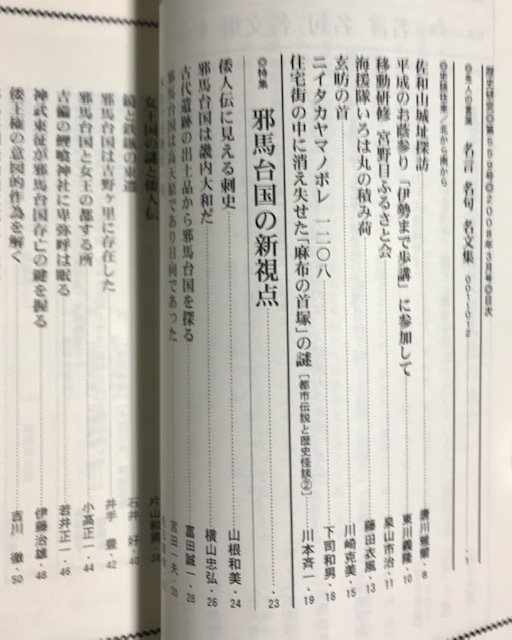 歴史研究◎第559号◎2008年3月号◎目次
名言 名句 名文集 001−012 ・1
◎史談往来／北から南から
佐和山城址探訪 廣川雅爾・8
平成のお蔭参り「伊勢まで歩講」に参加して 東川義隆・10
移動研修 宮野目ふるさと会 泉山市治・11
海援隊いろは丸の積み荷 藤田衣風・13
玄昉の首 川崎克美・15
ニイタカヤマノボレ 一二〇八 下司和男・18
住宅街の中に消え失せた「麻布の首塚」の謎[都市伝説と歴史怪談②] 川本斉一・19
◎特集 邪馬台国の新視点 23
倭人伝に見える刺史 山根和美・24
邪馬台国は畿内大和だ 横山忠弘・26
古代遺跡の出土品から邪馬台国を探る 富田誠一・28
邪馬台国は高天原であり日向であった 宮田一夫・30
女王国の謎と倭人伝 片山和男
鏡と鉄鏃の東遷 石井 好・40
邪馬台国は吉野ヶ里に存在した 井手 豊・42
邪馬台国と女王の都する所 小高正一・44
吉備の鯉喰神社に卑弥呼は眠る 若井正一・46
神武東征が邪馬台国存亡の鍵を握る 伊藤治雄・48
倭王権の意図的作為を解く 吉川 徹・50